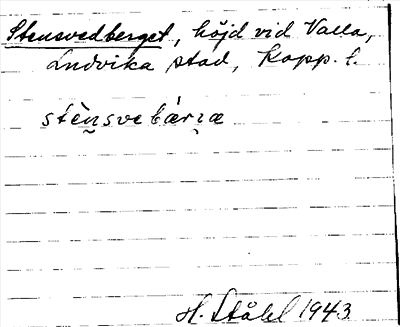 Stensvedberget, höjd vid Valla,
Ludvika stad, Kopp. l.
stèn̬svebærɪ̯æ
H. Ståhl 1943